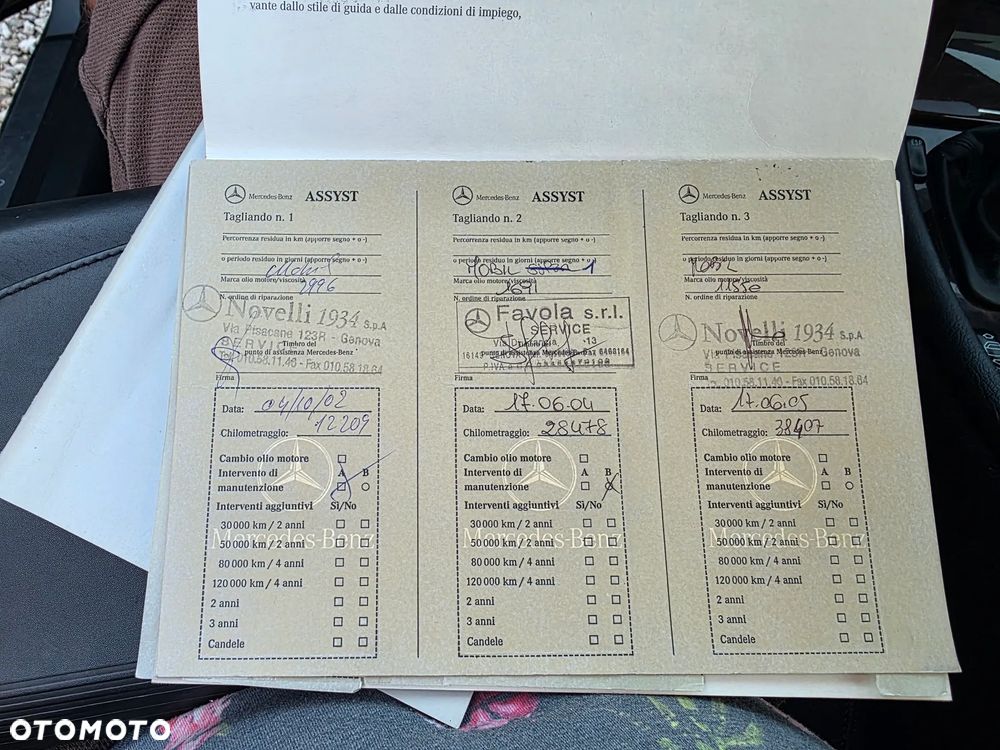 vante dallo stile di guida e dalle condizioni di impiego,
Mercedes-Benz ASSYST
Tagliando n. 1
Percorrenza residua in km (apporre segno + o -)
o periodo residuo in giorni (apporre segno + o -)
Mobil
Marca olio motore/viscosità
1996
N. ordine di riparazione
Novelli 1934 S.p.A
Via Pisacane 123R - Genova
SERVICE
Timbro del
punto di assistenza Mercedes-Benz
Tel. 010.58.11.40 - Fax 010.58.18.64
Firma
Data: 04/10/02
12209
Chilometraggio:
Cambio olio motore
Intervento di A B
manutenzione
Interventi aggiuntivi Sì/No
30 000 km / 2 anni
50 000 km / 2 anni
Mercedes-Benz
80 000 km / 4 anni
120 000 km / 4 anni
2 anni
3 anni
Candele
Mercedes-Benz ASSYST
Tagliando n. 2
Percorrenza residua in km (apporre segno + o -)
o periodo residuo in giorni (apporre segno + o -)
MOBIL 1
Marca olio motore/viscosità
1691
N. ordine di riparazione
Favola s.r.l.
SERVICE
13
punto di assistenza Mercedes-Benz
Firma
Data: 17.06.04
Chilometraggio: 28478
Cambio olio motore
Intervento di A B
manutenzione
Interventi aggiuntivi Sì/No
30 000 km / 2 anni
50 000 km / 2 anni
Mercedes-Benz
80 000 km / 4 anni
120 000 km / 4 anni
2 anni
3 anni
Candele
Mercedes-Benz ASSYST
Tagliando n. 3
Percorrenza residua in km (apporre segno + o -)
o periodo residuo in giorni (apporre segno + o -)
MOBIL
Marca olio motore/viscosità
11550
N. ordine di riparazione
Novelli 1934 S.p.A.
Via Pisacane 123R - Genova
Timbro del
punto di assistenza Mercedes-Benz
SERVICE
010.58.11.40 - Fax 010.58.18.64
Firma
Data: 17.06.05
Chilometraggio: 38407
Cambio olio motore
Intervento di A B
manutenzione
Interventi aggiuntivi Sì/No
30 000 km / 2 anni
50 000 km / 2 anni
Mercedes-Benz
80 000 km / 4 anni
120 000 km / 4 anni
2 anni
3 anni
Candele
ESP
OTOMOTO